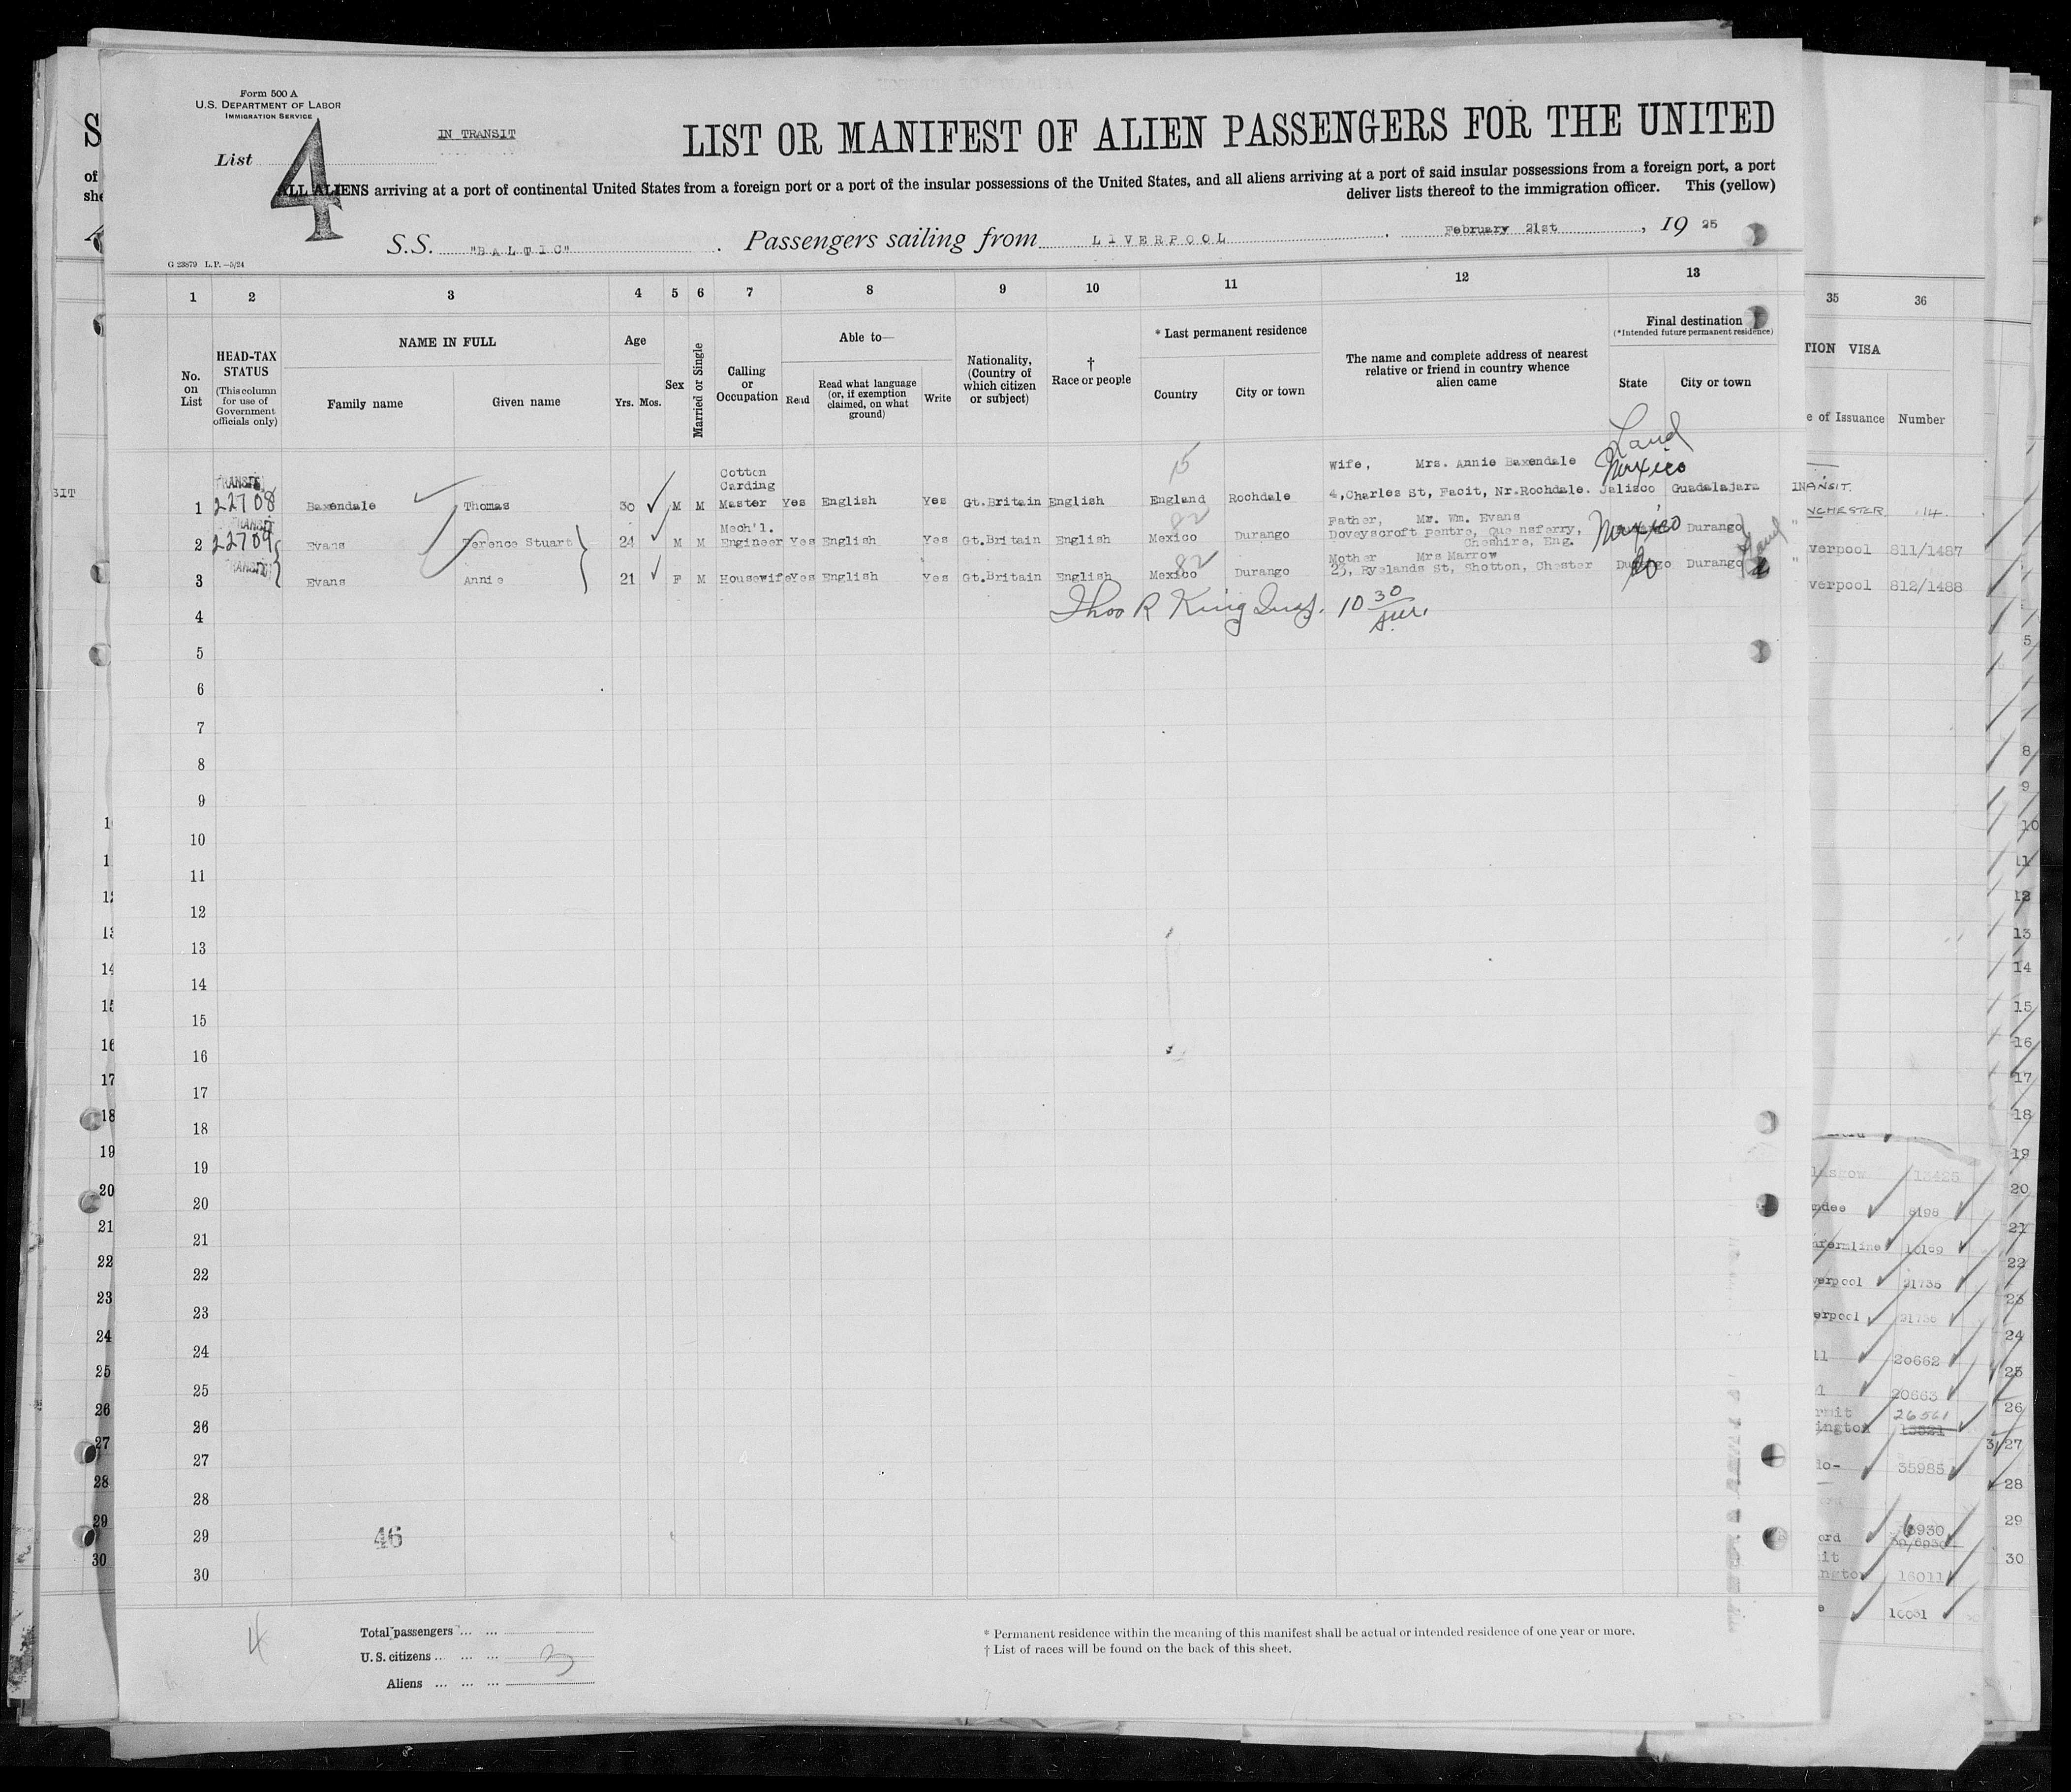 Form 500 A
U.S. DEPARTMENT OF LABOR
IMMIGRATION SERVICE
IN TRANSIT
List 4
LIST OR MANIFEST OF ALIEN PASSENGERS FOR THE UNITED
ALL ALIENS arriving at a port of continental United States from a foreign port or a port of the insular possessions of the United States, and all aliens arriving at a port of said insular possessions from a foreign port, a port
deliver lists thereof to the immigration officer. This (yellow)
S.S. "BALTIC" . Passengers sailing from LIVERPOOL . February 21st , 19 25
G 23879 L.P.—5/24
1 2 3 4 5 6 7 8 9 10 11 12 13
No. on List
HEAD-TAX STATUS
(This column for use of Government officials only)
NAME IN FULL
Family name Given name
Age
Yrs. Mos.
Sex
Married or Single
Calling or Occupation
Able to—
Read
Read what language (or, if exemption claimed, on what ground)
Write
Nationality, (Country of which citizen or subject)
† Race or people
* Last permanent residence
Country City or town
The name and complete address of nearest relative or friend in country whence alien came
Final destination
(*Intended future permanent residence)
State City or town
35 36
TION VISA
e of Issuance Number
Land
15 Mexico
TRANSIT
22708
1 Baxendale Thomas 30 M M Cotton Carding Master Yes English Yes Gt.Britain English England Rochdale Wife, Mrs. Annie Baxendale
4,Charles St, Facit, Nr.Rochdale. Jalisco Guadalajara
IN TRANSIT.
NCHESTER 14
TRANSIT
22709
2 Evans Terence Stuart 24 M M Mech'l. Engineer Yes English Yes Gt.Britain English 82 Mexico Durango Father, Mr. Wm. Evans
Doveyscroft Pentre, Queensferry,
Cheshire, Eng. Mexico Durango Land
verpool 811/1487
TRANSIT
3 Evans Annie 21 F M Housewife Yes English Yes Gt.Britain English 82 Mexico Durango Mother Mrs Marrow
23, Ryelands St, Shotton, Chester Durango do Durango
verpool 812/1488
4 Thos R King Insp. 10 30 AM.
5
6
7
8
9
10
11
12
13
14
15
16
17
18
19
20
21
22
23
24
25
26
27
28
29 46
30
4
Total passengers
U. S. citizens 3
Aliens
* Permanent residence within the meaning of this manifest shall be actual or intended residence of one year or more.
† List of races will be found on the back of this sheet.
lasgow 13425
ndee 8198
nfermline 10199
verpool 21735
erpool 21736
ll 20662
20663
rmit 26561
ington 13521
do- 35985
6930
ord
it
ngton 16011
e 10031